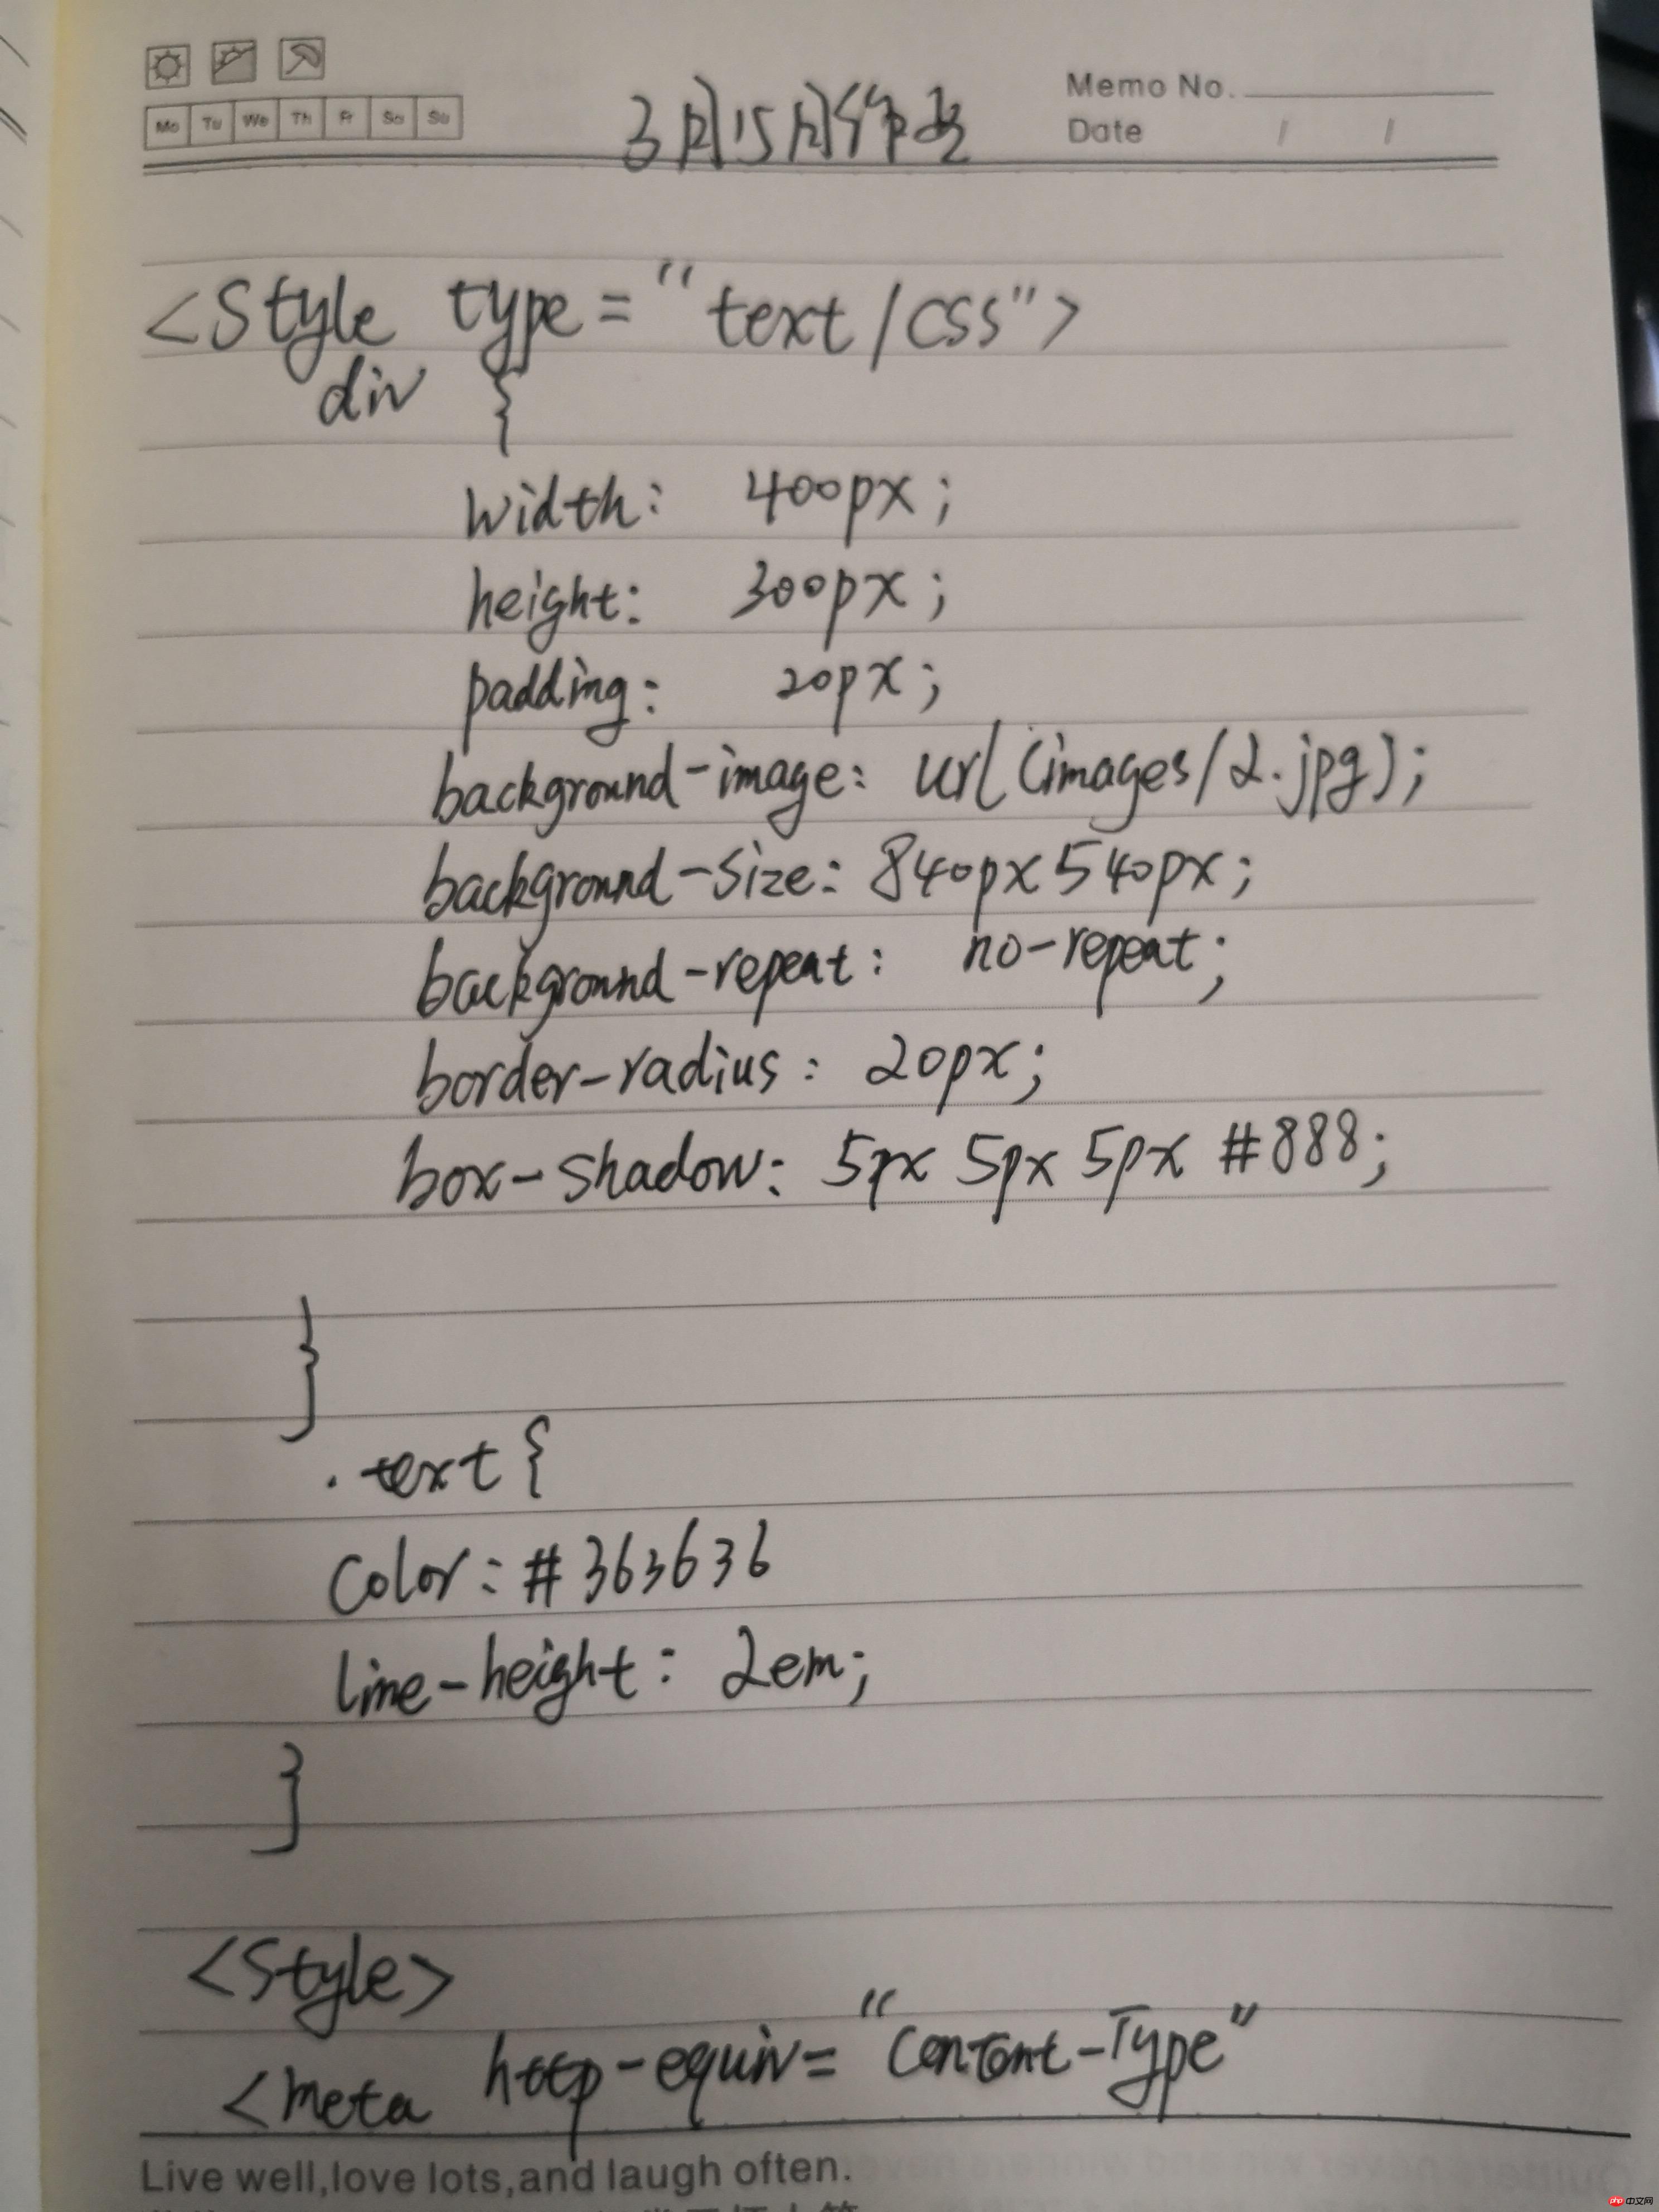 Memo No.
Mo Tu We Th Fr Sa Su
3月15日作业
Date / /
<Style type="text/css">
div {
width: 400px;
height: 300px;
padding: 20px;
background-image: url(images/2.jpg);
background-size: 840px 540px;
background-repeat: no-repeat;
border-radius: 20px;
box-shadow: 5px 5px 5px #888;
}
.text{
Color: #363636
line-height: 2em;
}
<Style>
<meta http-equiv="Content-Type"
Live well,love lots,and laugh often.
php 中文网